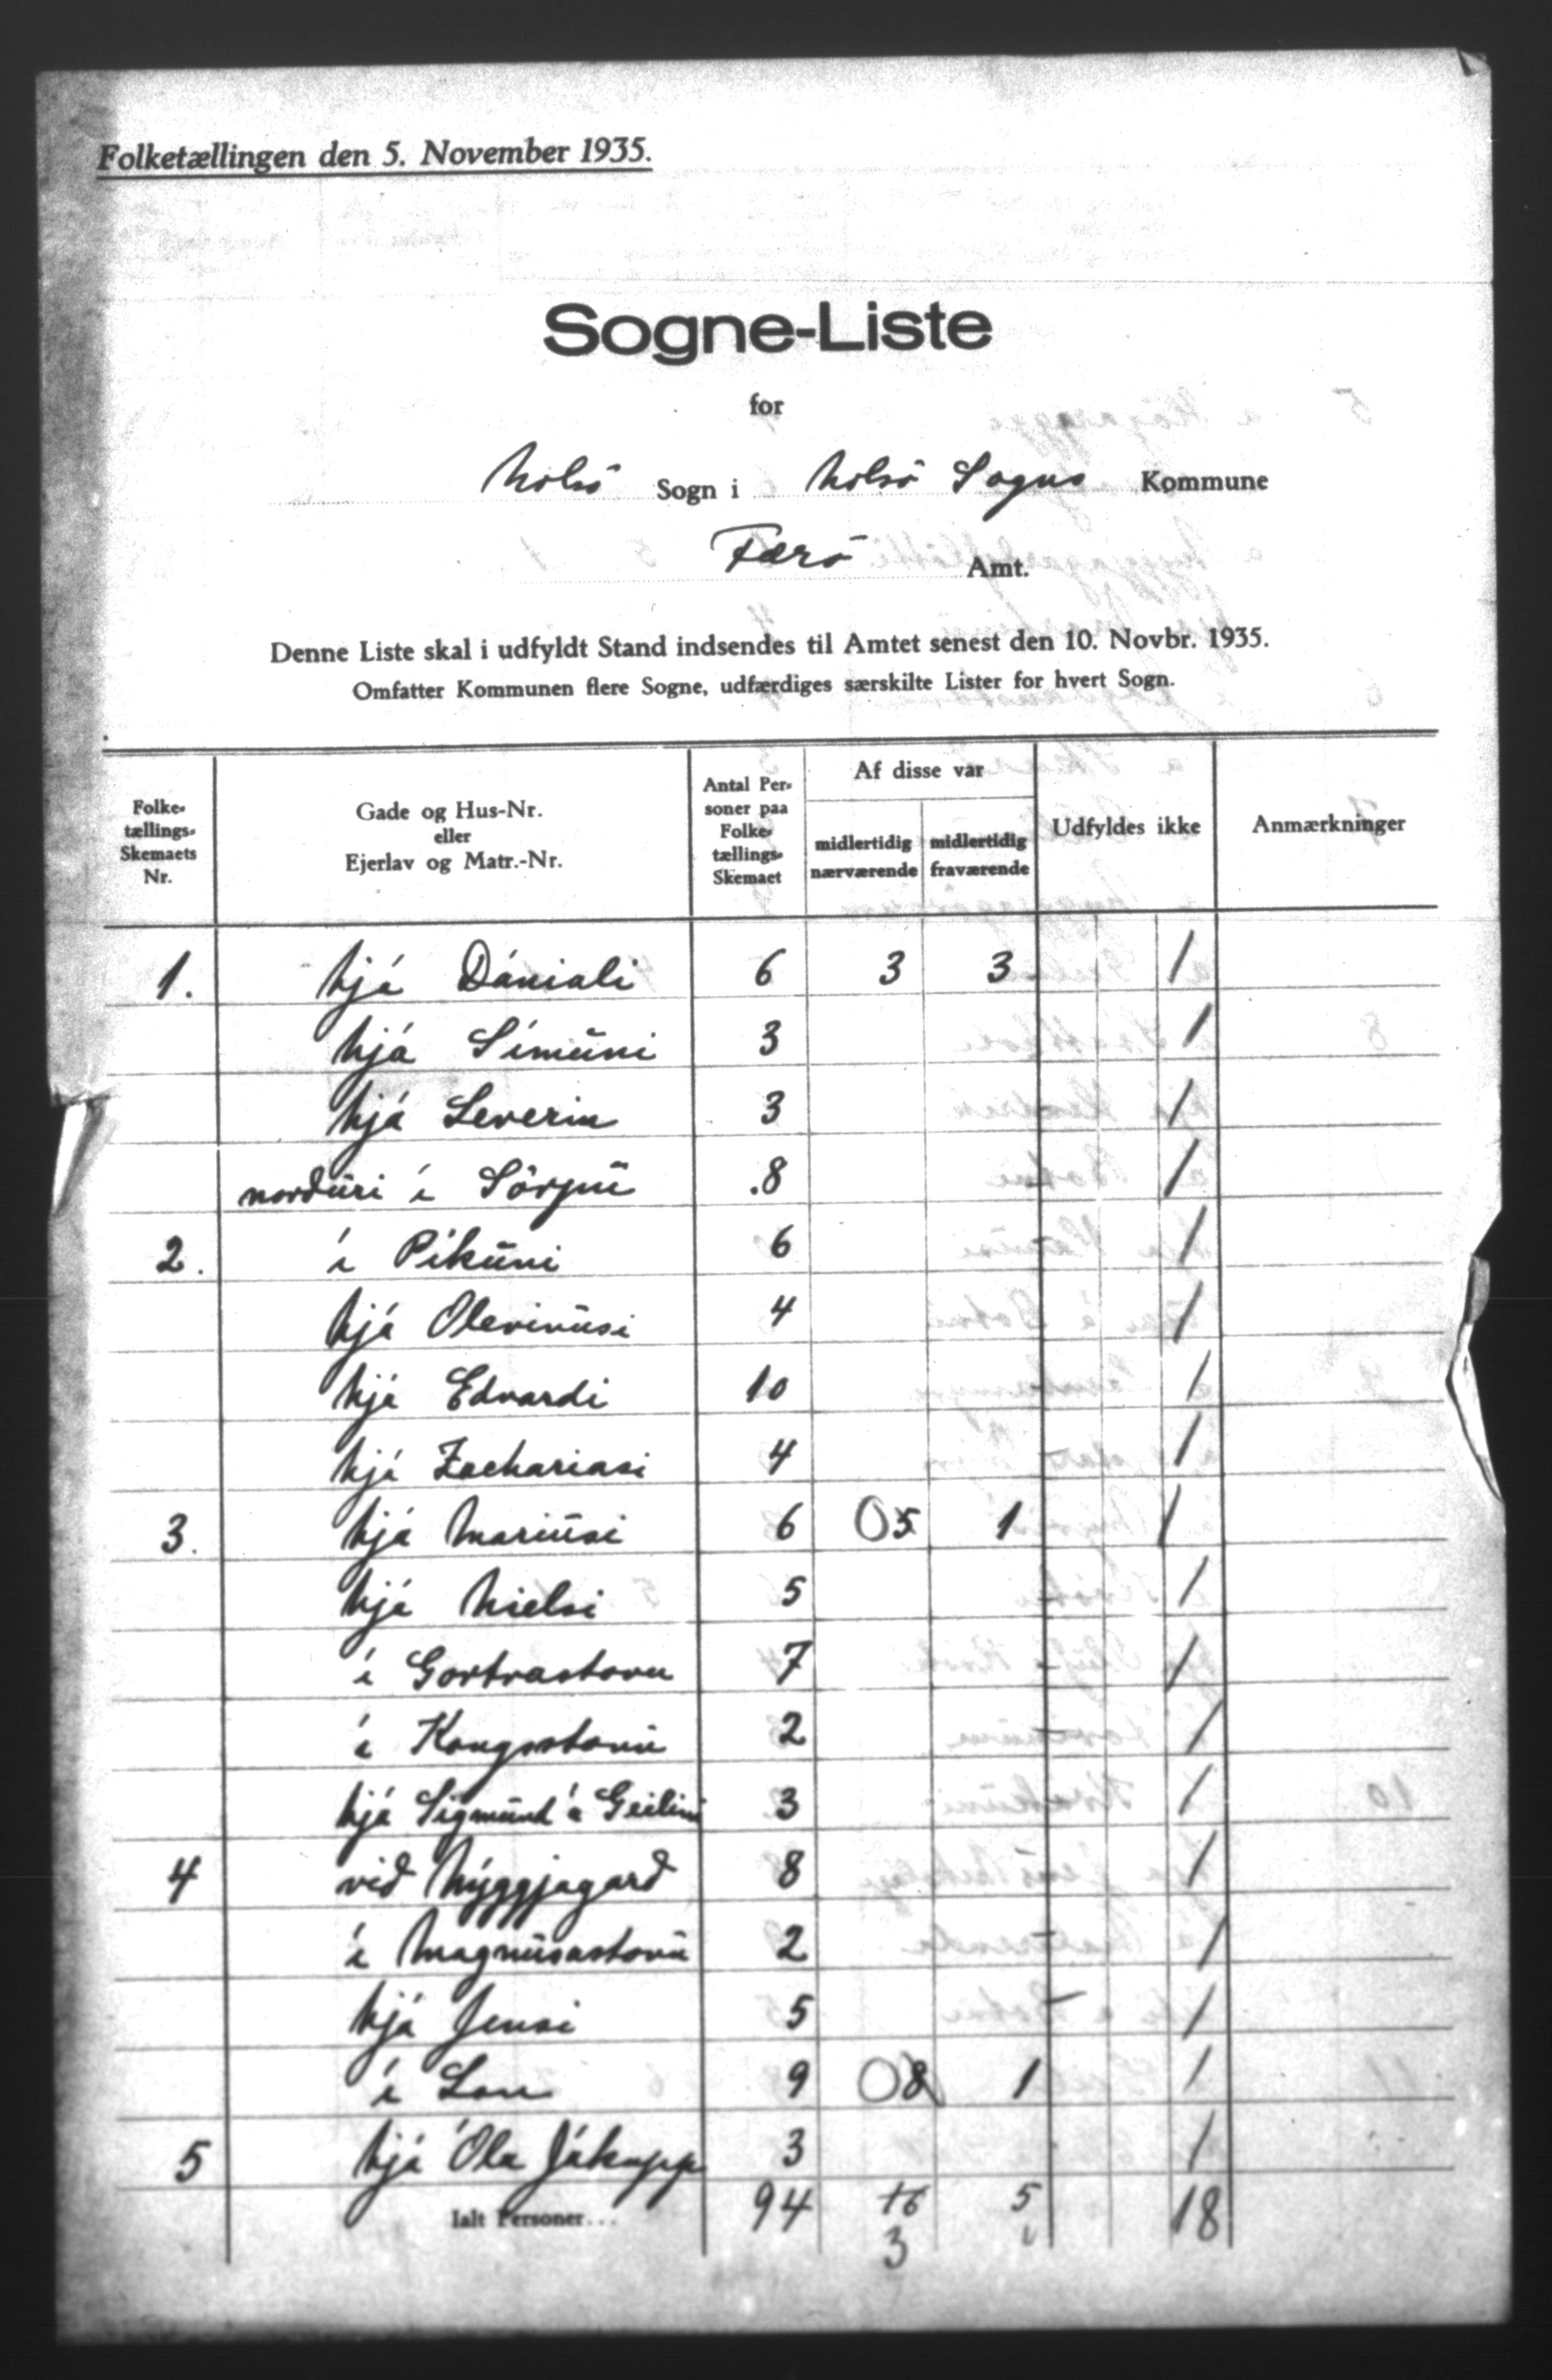 Folketællingen den 5. November 1935.
Sogne-Liste
for
Nolsö Sogn i Nolsö Sogns Kommune
Færö Amt.
Denne Liste skal i udfyldt Stand indsendes til Amtet senest den 10. Novbr. 1935.
Omfatter Kommunen flere Sogne, udfærdiges særskilte Lister for hvert Sogn.
Folke-tællings-Skemaets Nr. Gade og Hus-Nr. eller Ejerlav og Matr.-Nr. Antal Personer paa Folketællings-Skemaet Af disse var midlertidig nærværende midlertidig fraværende Udfyldes ikke Anmærkninger
1. hjá Dániali 6 3 3 1
hjá Símŭni 3 1
hjá Severin 3 1
norðŭri í Sörpŭ 8 1
2. í Pikŭni 6 1
hjá Olevinŭsi 4 1
hjá Edvardi 10 1
hjá Zachariasi 4 1
3. hjá Mariŭsi 6 0 5 1 1
hjá Nielsi 5 1
í Gortrastovu 7 1
í Kongsstovŭ 2 1
hjá Sigmŭnd á Geilini 3 1
4 við Nýggjagarð 8 1
í Magnŭsastovŭ 2 1
hjá Jensi 5 – 1
í Lon 9 0 8 1 1
5 hjá Óla Jákupp 3 1
Ialt Personer... 94 16 5 18
3